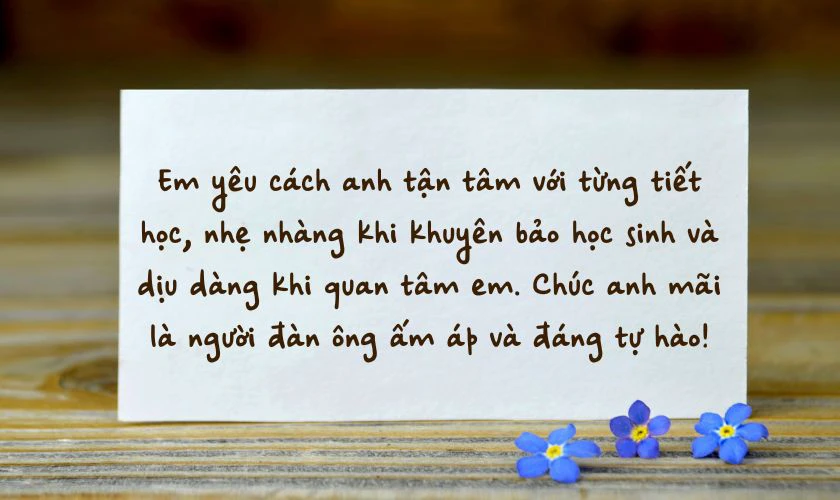 Em yêu cách anh tận tâm với từng tiết
học, nhẹ nhàng khi khuyên bảo học sinh và
dịu dàng khi quan tâm em. Chúc anh mãi
là người đàn ông ấm áp và đáng tự hào!